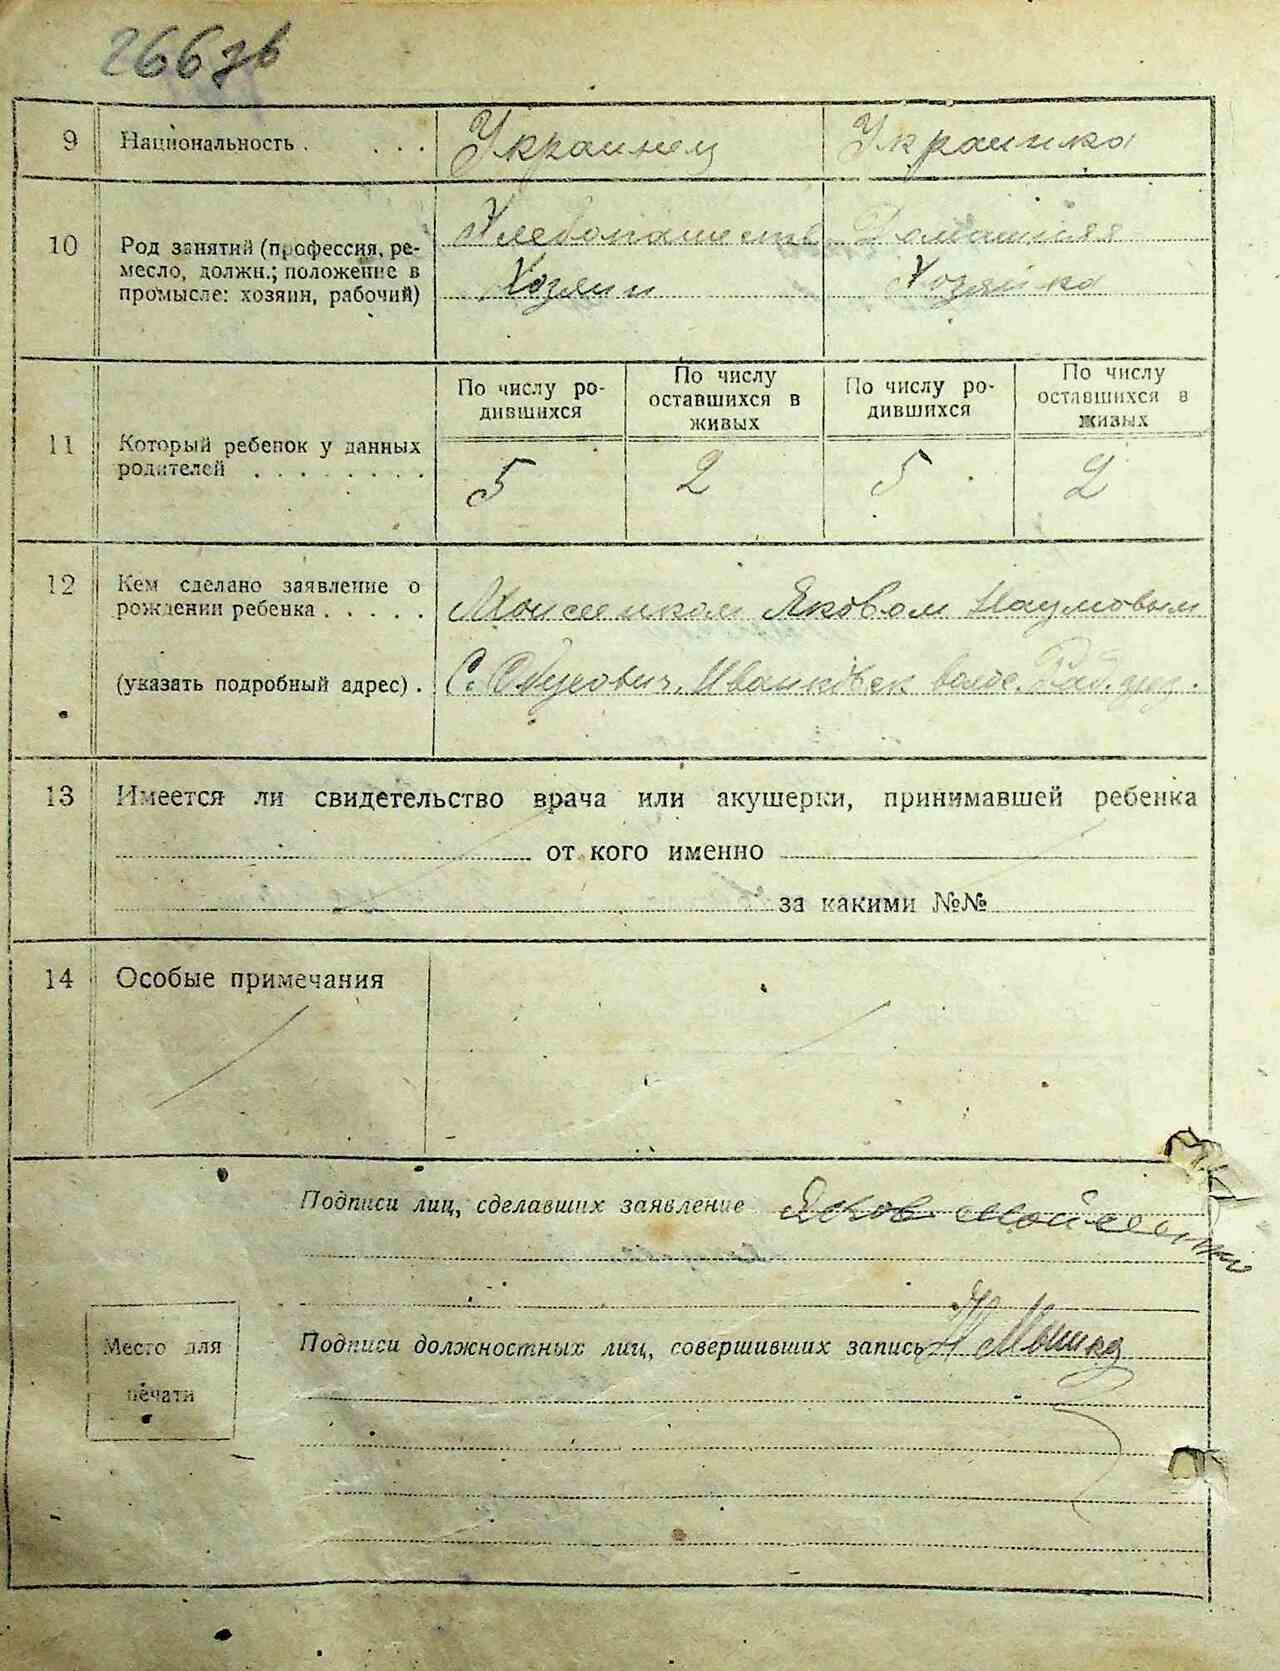 266зв
9 Национальность . . . . Украинец Украинка
10 Род занятий (профессия, ре-
месло, должн.; положение в
промысле: хозяин, рабочий)
Хлебопашество Домашняя
Хозяин Хозяйка
11 Который ребенок у данных
родителей . . . . . . . .
По числу ро-
дившихся
По числу
оставшихся в
живых
По числу ро-
дившихся
По числу
оставшихся в
живых
5 2 5 2
12 Кем сделано заявление о
рождении ребенка . . . . .
Моисеенком Яковом Наумовым
(указать подробный адрес) . С. Обуховичи, Иванковск волос. Рад. уез.
13 Имеется ли свидетельство врача или акушерки, принимавшей ребенка
от кого именно
за какими №№
14 Особые примечания
Подписи лиц, сделавших заявление Яков Мойсеенко
Подписи должностных лиц, совершивших запись
Место для
печати